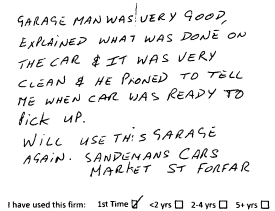 GARAGE MAN WAS VERY GOOD,
EXPLAINED WHAT WAS DONE ON
THE CAR & IT WAS VERY
CLEAN & HE PHONED TO TELL
ME WHEN CAR WAS READY TO
PICK UP.
WILL USE THIS GARAGE
AGAIN. SANDEMANS CARS
MARKET ST FORFAR
I have used this firm: 1st Time ☑ <2 yrs ☐ 2-4 yrs ☐ 5+ yrs ☐